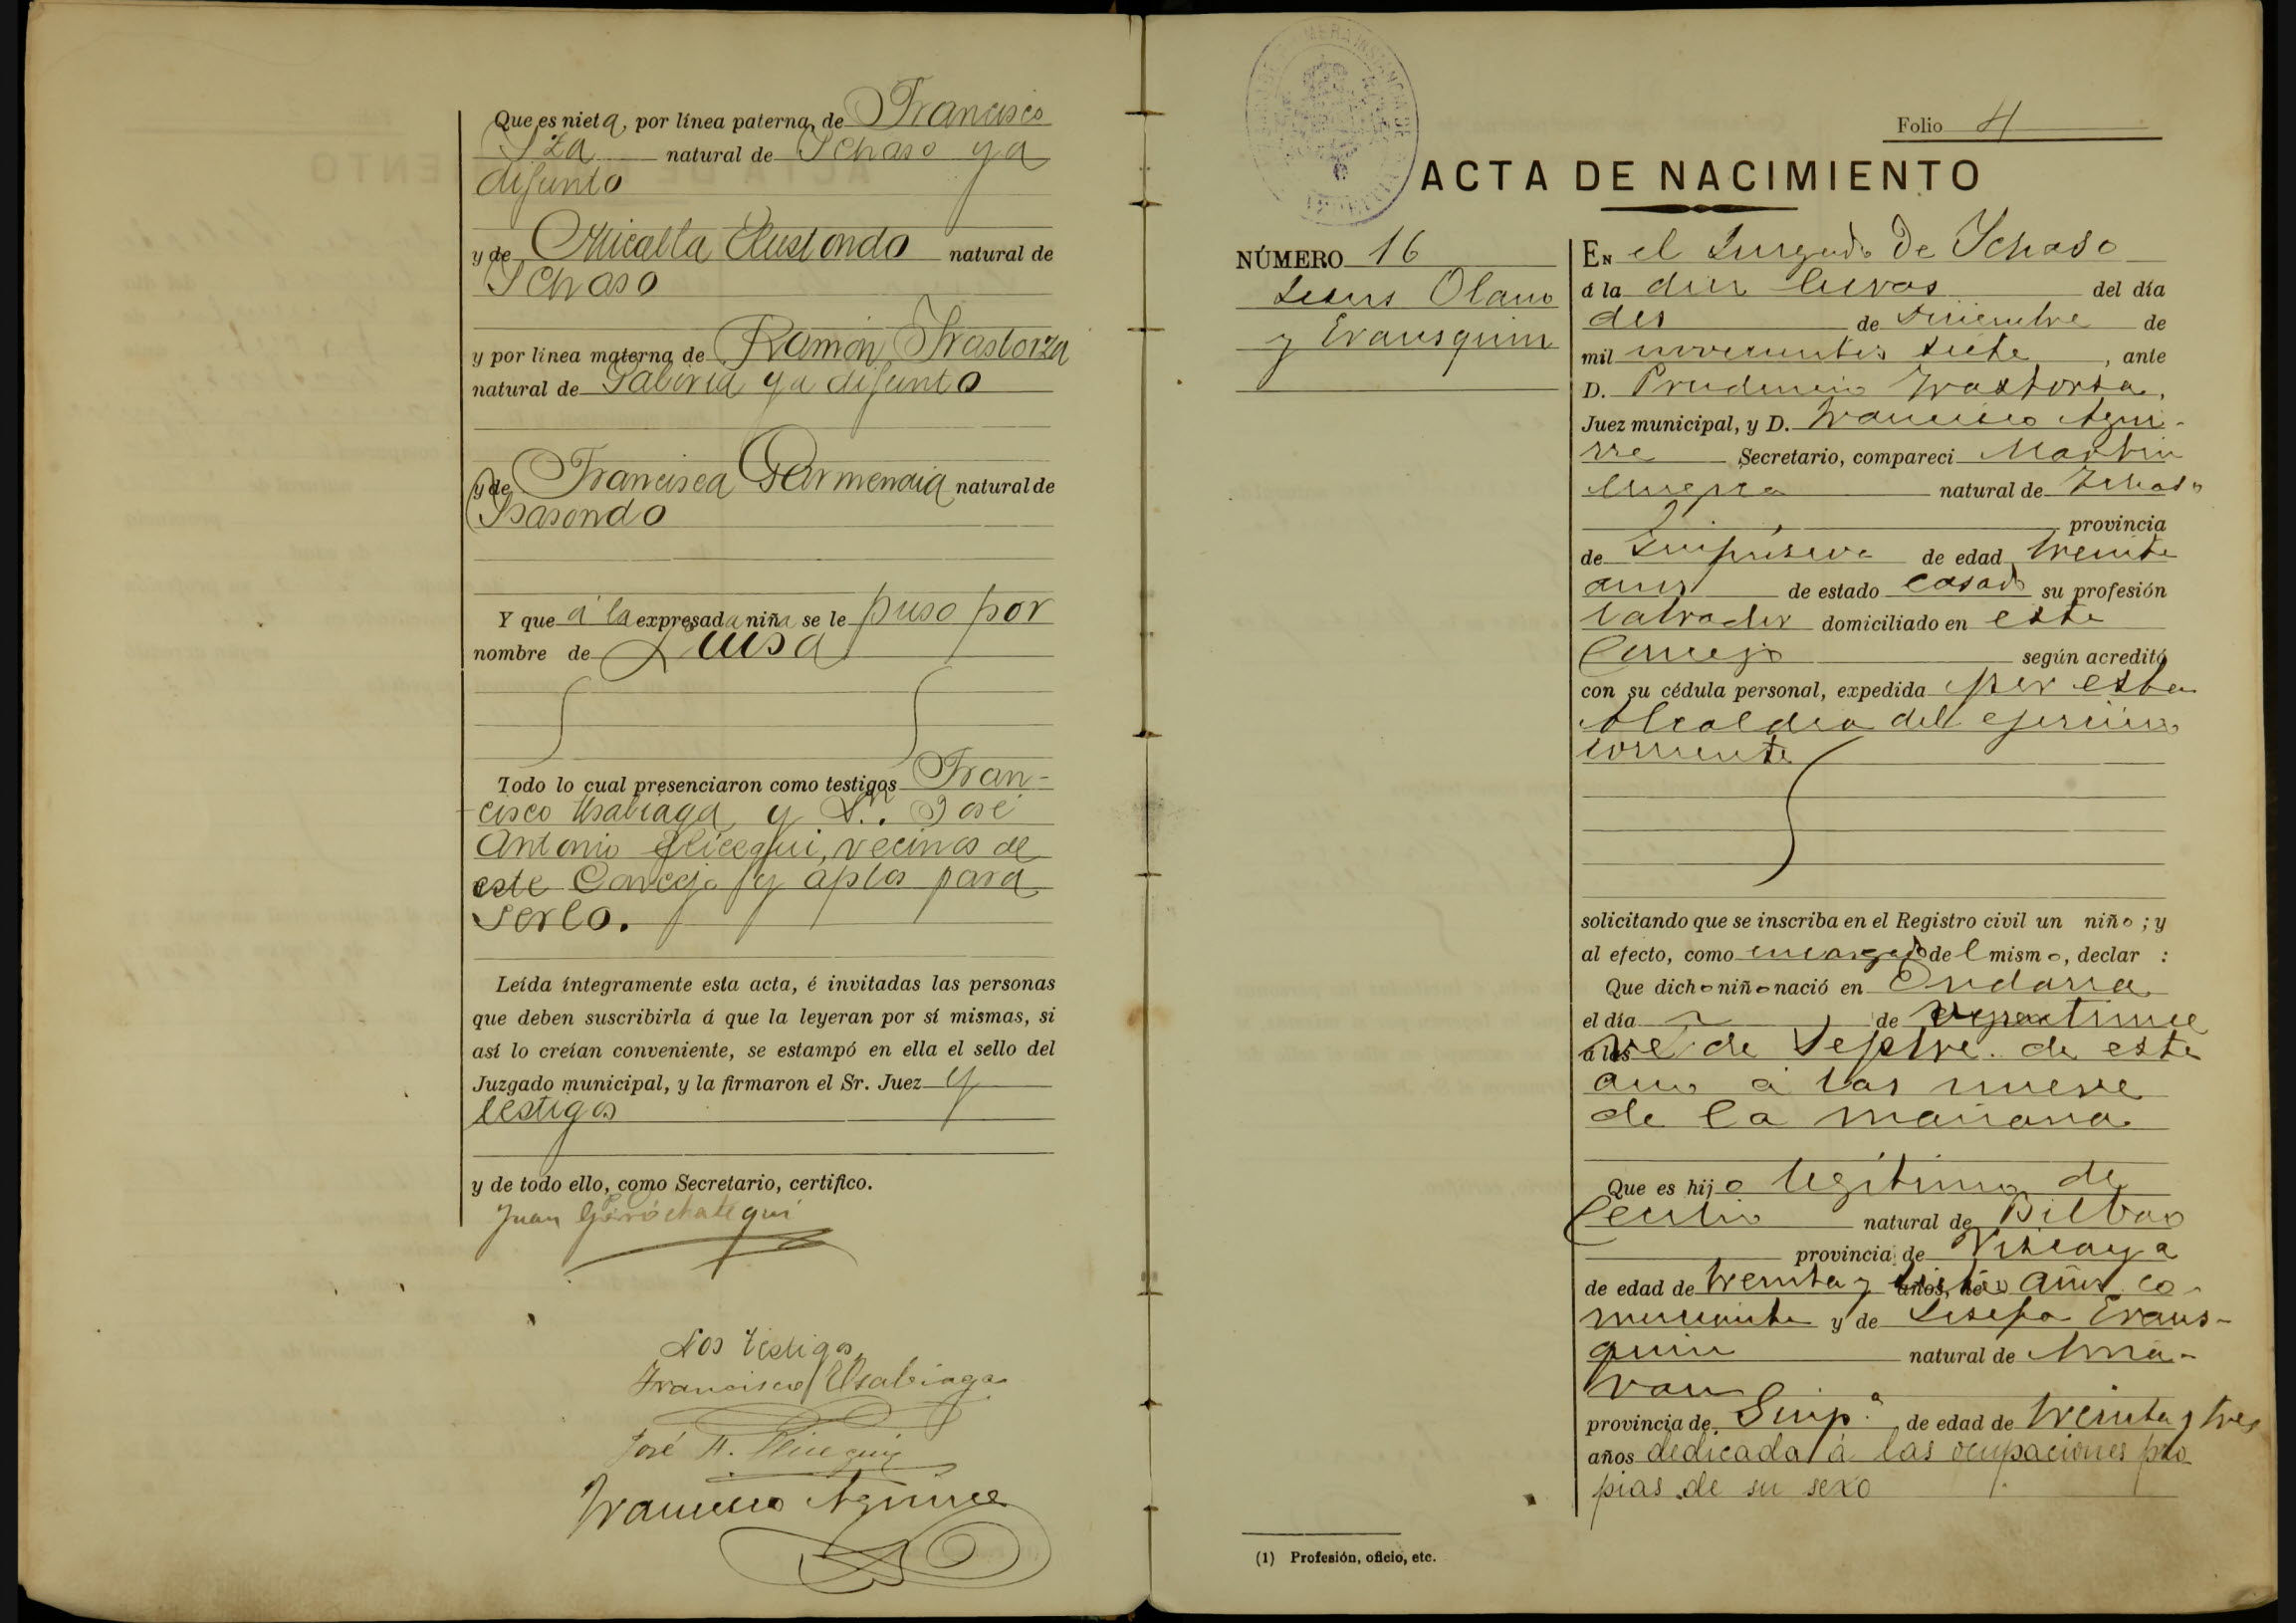 Que es nieta, por línea paterna, de Francisco
Iza natural de Ichaso ya
difunto
y de Micaela Austondo natural de
Ichaso
y por línea materna de Ramón Irastorza
natural de Gabiria ya difunto
y de Francisca Garmendia natural de
Isasondo
Y que á la expresada niña se le puso por
nombre de Luisa
Todo lo cual presenciaron como testigos Fran-
cisco Usabiaga y D.n José
Antonio Elicegui, vecinos de
este Concejo y aptos para
serlo.
Leída íntegramente esta acta, é invitadas las personas
que deben suscribirla á que la leyeran por sí mismas, si
así lo creían conveniente, se estampó en ella el sello del
Juzgado municipal, y la firmaron el Sr. Juez y
testigos
y de todo ello, como Secretario, certifico.
Juan Goróstategui
Los testigos
Francisco Usabiaga
José A. Elicegui
Francisco Aguirre
Folio 4
ACTA DE NACIMIENTO
NÚMERO 16
Jesus Olano
y Erausquin
EN el Juzgado de Ichaso
á la diez horas del día
dos de de
mil novecientos siete, ante
D. Prudencio Irastorza,
Juez municipal, y D. Francisco Agui-
rre Secretario, compareci Martin
natural de Ichaso
provincia
de Guipúzcoa de edad treinta
años de estado casado su profesión
labrador domiciliado en este
Concejo según acreditó
con su cédula personal, expedida por esta
Alcaldia del ejercicio
corriente
solicitando que se inscriba en el Registro civil un niño; y
al efecto, como encargado del mismo, declar :
Que dicho niño nació en Ondarra
el día de veintinue
ve de Sepbre. de este
año a las nueve
de la mañana
Que es hijo legítimo de
Cecilio natural de Bilbao
provincia de Viscaya
de edad de treinta y años co-
merciante y de Josefa Eraus-
quin natural de Ama-
provincia de Guip.a de edad de treinta y tres
años dedicada á las ocupaciones pro
pias de su sexo
(1) Profesión, oficio, etc.